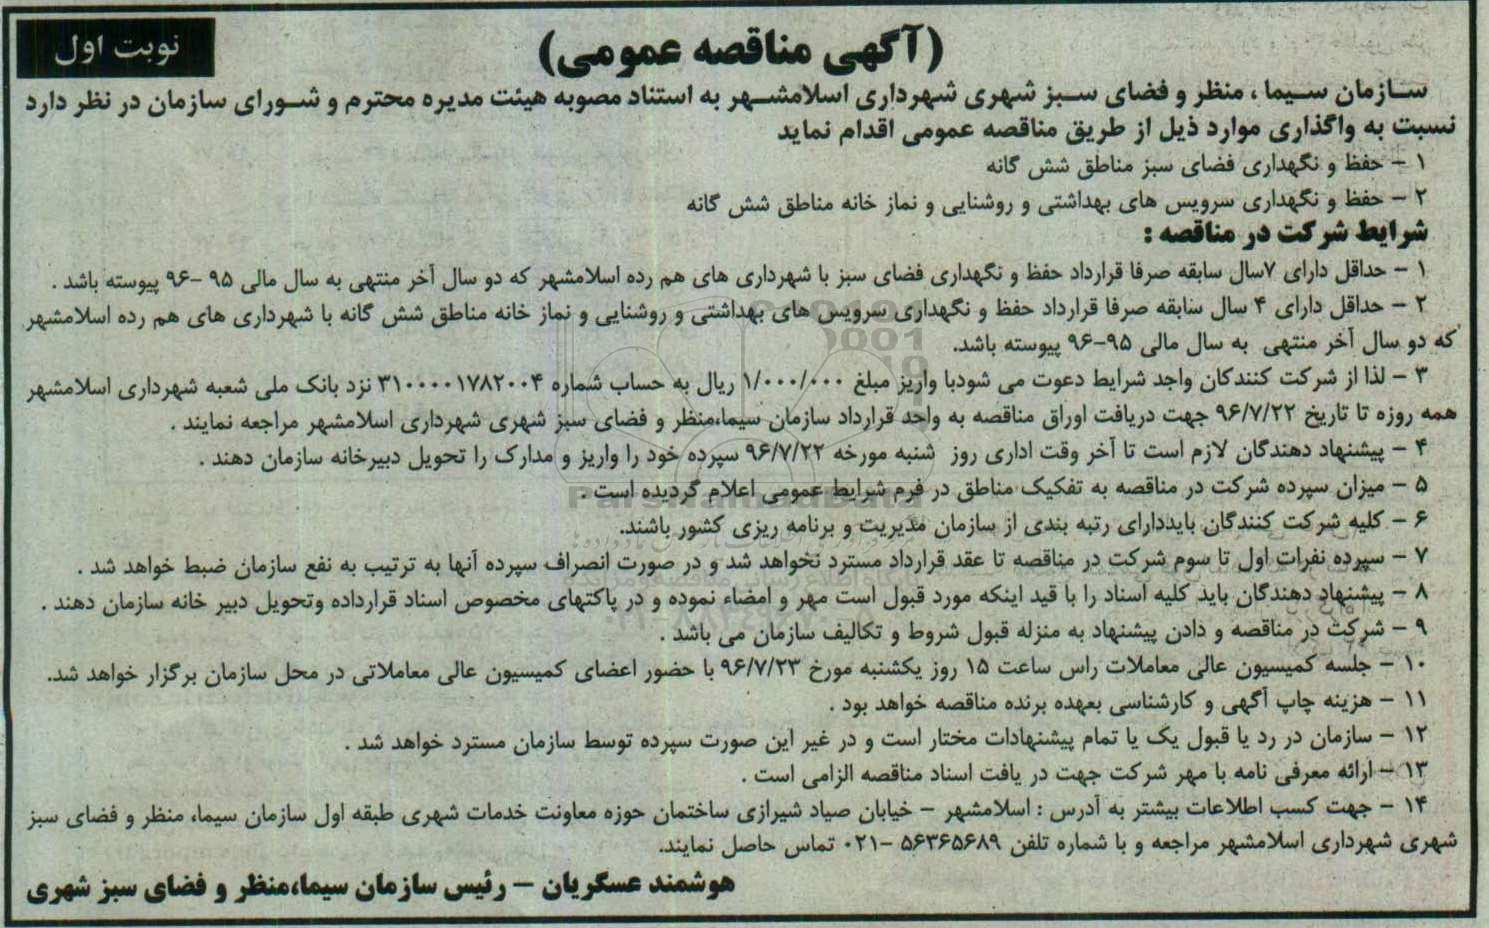 نوبت اول
(آگهی مناقصه عمومی)
سازمان سیما ، منظر و فضای سبز شهری شهرداری اسلامشهر به استناد مصوبه هیئت مدیره محترم و شورای سازمان در نظر دارد
نسبت به واگذاری موارد ذیل از طریق مناقصه عمومی اقدام نماید
۱ – حفظ و نگهداری فضای سبز مناطق شش گانه
۲ – حفظ و نگهداری سرویس های بهداشتی و روشنایی و نماز خانه مناطق شش گانه
شرایط شرکت در مناقصه :
۱ – حداقل دارای ۷سال سابقه صرفا قرارداد حفظ و نگهداری فضای سبز با شهرداری های هم رده اسلامشهر که دو سال آخر منتهی به سال مالی ۹۵ –۹۶ پیوسته باشد .
۲ – حداقل دارای ۴ سال سابقه صرفا قرارداد حفظ و نگهداری سرویس های بهداشتی و روشنایی و نماز خانه مناطق شش گانه با شهرداری های هم رده اسلامشهر
که دو سال آخر منتهی به سال مالی ۹۵–۹۶ پیوسته باشد.
۳ – لذا از شرکت کنندگان واجد شرایط دعوت می شودبا واریز مبلغ ۱/۰۰۰/۰۰۰ ریال به حساب شماره ۳۱۰۰۰۰۱۷۸۲۰۰۴ نزد بانک ملی شعبه شهرداری اسلامشهر
همه روزه تا تاریخ ۹۶/۷/۲۲ جهت دریافت اوراق مناقصه به واحد قرارداد سازمان سیما،منظر و فضای سبز شهری شهرداری اسلامشهر مراجعه نمایند .
۴ – پیشنهاد دهندگان لازم است تا آخر وقت اداری روز شنبه مورخه ۹۶/۷/۲۲ سپرده خود را واریز و مدارک را تحویل دبیرخانه سازمان دهند .
۵ – میزان سپرده شرکت در مناقصه به تفکیک مناطق در فرم شرایط عمومی اعلام گردیده است .
۶ – کلیه شرکت کنندگان بایددارای رتبه بندی از سازمان مدیریت و برنامه ریزی کشور باشند.
۷ – سپرده نفرات اول تا سوم شرکت در مناقصه تا عقد قرارداد مسترد نخواهد شد و در صورت انصراف سپرده آنها به ترتیب به نفع سازمان ضبط خواهد شد .
۸ – پیشنهاد دهندگان باید کلیه اسناد را با قید اینکه مورد قبول است مهر و امضاء نموده و در پاکتهای مخصوص اسناد قرارداده وتحویل دبیر خانه سازمان دهند .
۹ – شرکت در مناقصه و دادن پیشنهاد به منزله قبول شروط و تکالیف سازمان می باشد .
۱۰ – جلسه کمیسیون عالی معاملات راس ساعت ۱۵ روز یکشنبه مورخ ۹۶/۷/۲۳ با حضور اعضای کمیسیون عالی معاملاتی در محل سازمان برگزار خواهد شد.
۱۱ – هزینه چاپ آگهی و کارشناسی بعهده برنده مناقصه خواهد بود .
۱۲ – سازمان در رد یا قبول یک یا تمام پیشنهادات مختار است و در غیر این صورت سپرده توسط سازمان مسترد خواهد شد .
۱۳ – ارائه معرفی نامه با مهر شرکت جهت در یافت اسناد مناقصه الزامی است .
۱۴ – جهت کسب اطلاعات بیشتر به آدرس : اسلامشهر – خیابان صیاد شیرازی ساختمان حوزه معاونت خدمات شهری طبقه اول سازمان سیما، منظر و فضای سبز
شهری شهرداری اسلامشهر مراجعه و با شماره تلفن ۵۶۳۶۵۶۸۹ –۰۲۱ تماس حاصل نمایند.
هوشمند عسگریان – رئیس سازمان سیما،منظر و فضای سبز شهری